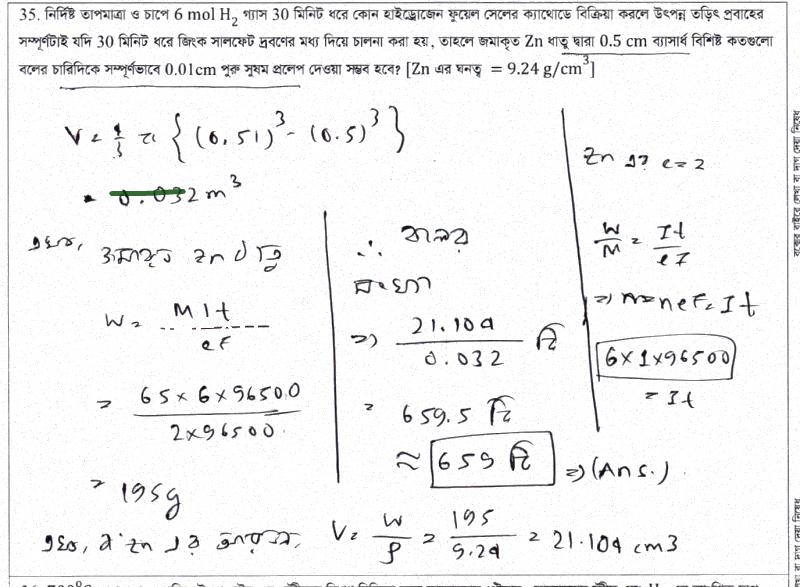 35. নির্দিষ্ট তাপমাত্রা ও চাপে 6 mol H₂ গ্যাস 30 মিনিট ধরে কোন হাইড্রোজেন ফুয়েল সেলের ক্যাথোডে বিক্রিয়া করলে উৎপন্ন তড়িৎ প্রবাহের
সম্পূর্ণটাই যদি 30 মিনিট ধরে জিংক সালফেট দ্রবণের মধ্য দিয়ে চালনা করা হয়, তাহলে জমাকৃত Zn ধাতু দ্বারা 0.5 cm ব্যাসার্ধ বিশিষ্ট কতগুলো
বলের চারিদিকে সম্পূর্ণভাবে 0.01cm পুরু সুষম প্রলেপ দেওয়া সম্ভব হবে? [Zn এর ঘনত্ব = 9.24 g/cm³]
V = 4/3 π { (0.51)³ - (0.5)³ }
0.032 m³
এখন, জমাকৃত Zn ধাতু
W = MIt / eF
= 65 × 6 × 96500 / 2 × 96500
= 195g
∴ বলের
সংখ্যা
=) 21.104 / 0.032 টি
= 659.5 টি
≈ 659 টি =) (Ans.)
Zn এর e = 2
W/M = It/eF
=) neF = It
6×1×96500
= It
এখন, Zn এর আয়তন, V = W/ρ = 195/9.24 = 21.104 cm3